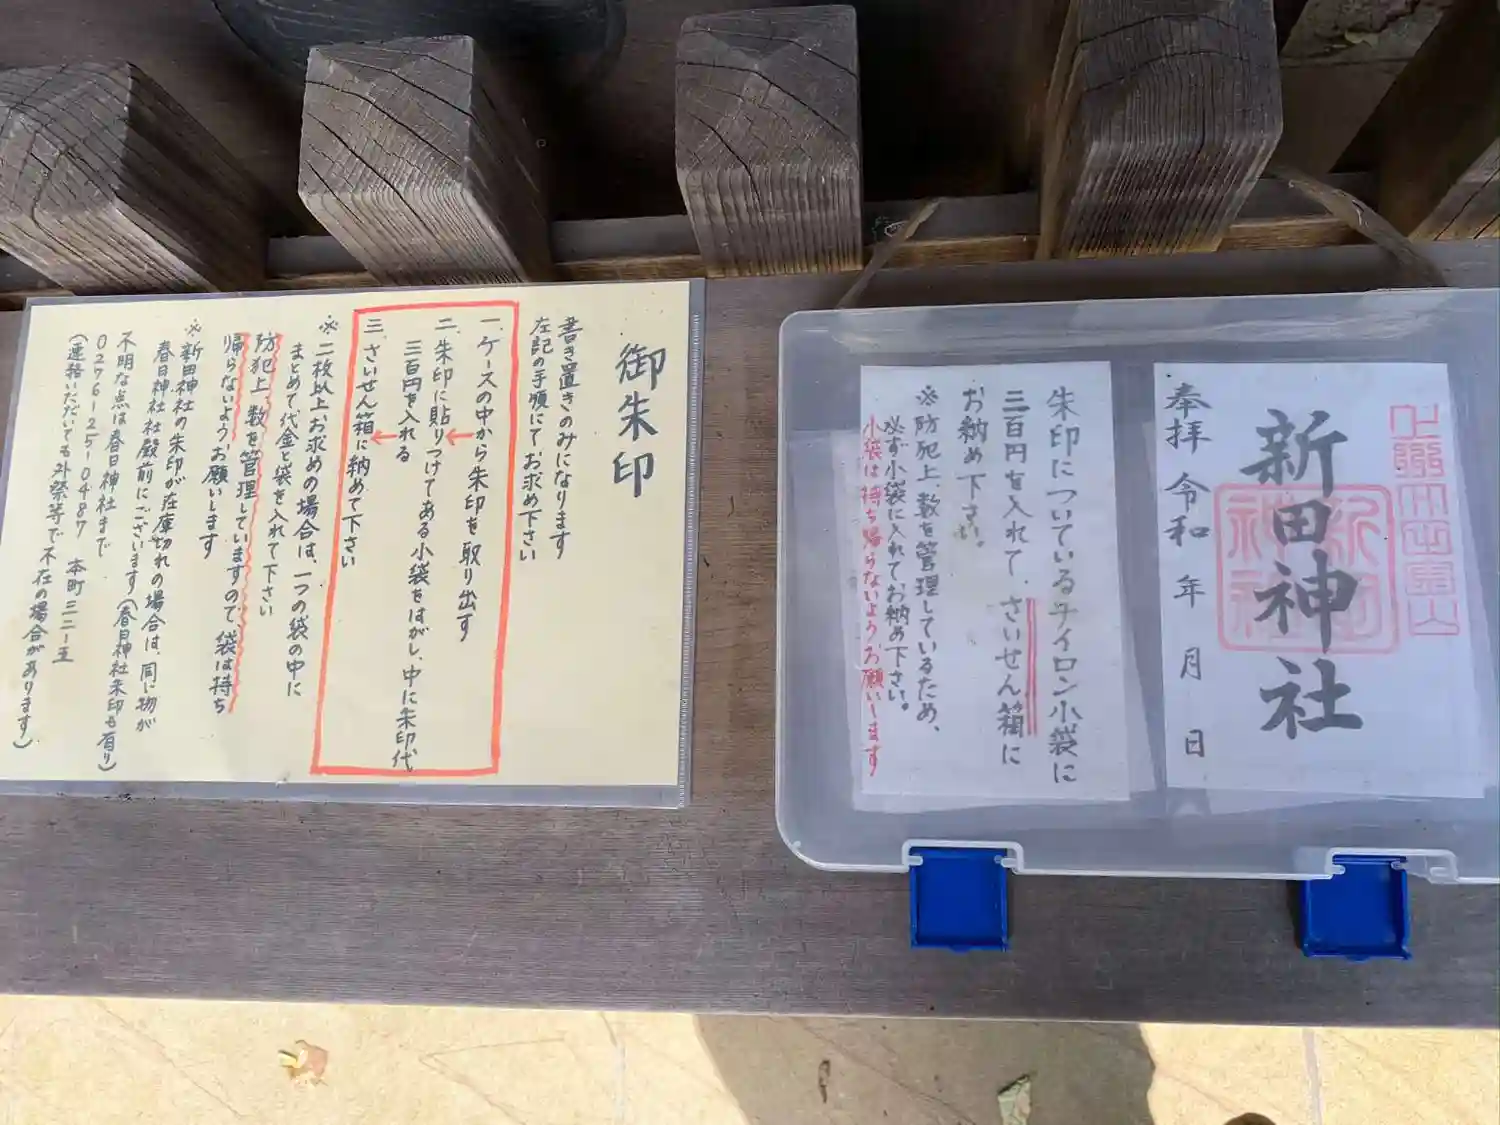 御朱印
書き置きのみになります
左記の手順にてお求め下さい
一、ケースの中から朱印を取り出す
二、朱印に貼りつけてある小袋をはがし、中に朱印代
三百円を入れる
三、さいせん箱に納めて下さい
※二枚以上お求めの場合は、一つの袋の中に
まとめて代金と袋を入れて下さい
防犯上、数を管理していますので袋は持ち
帰らないようお願いします
※新田神社の朱印が在庫切れの場合は、同じ物が
春日神社社殿前にございます(春日神社朱印も有り)
不明な点は春日神社まで
0276-25-0487 本町三二-五
(連絡いただいても外祭等で不在の場合があります)
奉拝 令和 年 月 日
新田神社
新田神社
朱印についているナイロン小袋に
三百円を入れて、さいせん箱に
お納め下さい。
※防犯上、数を管理しているため、
必ず小袋に入れてお納め下さい。
小袋は持ち帰らないようお願いします